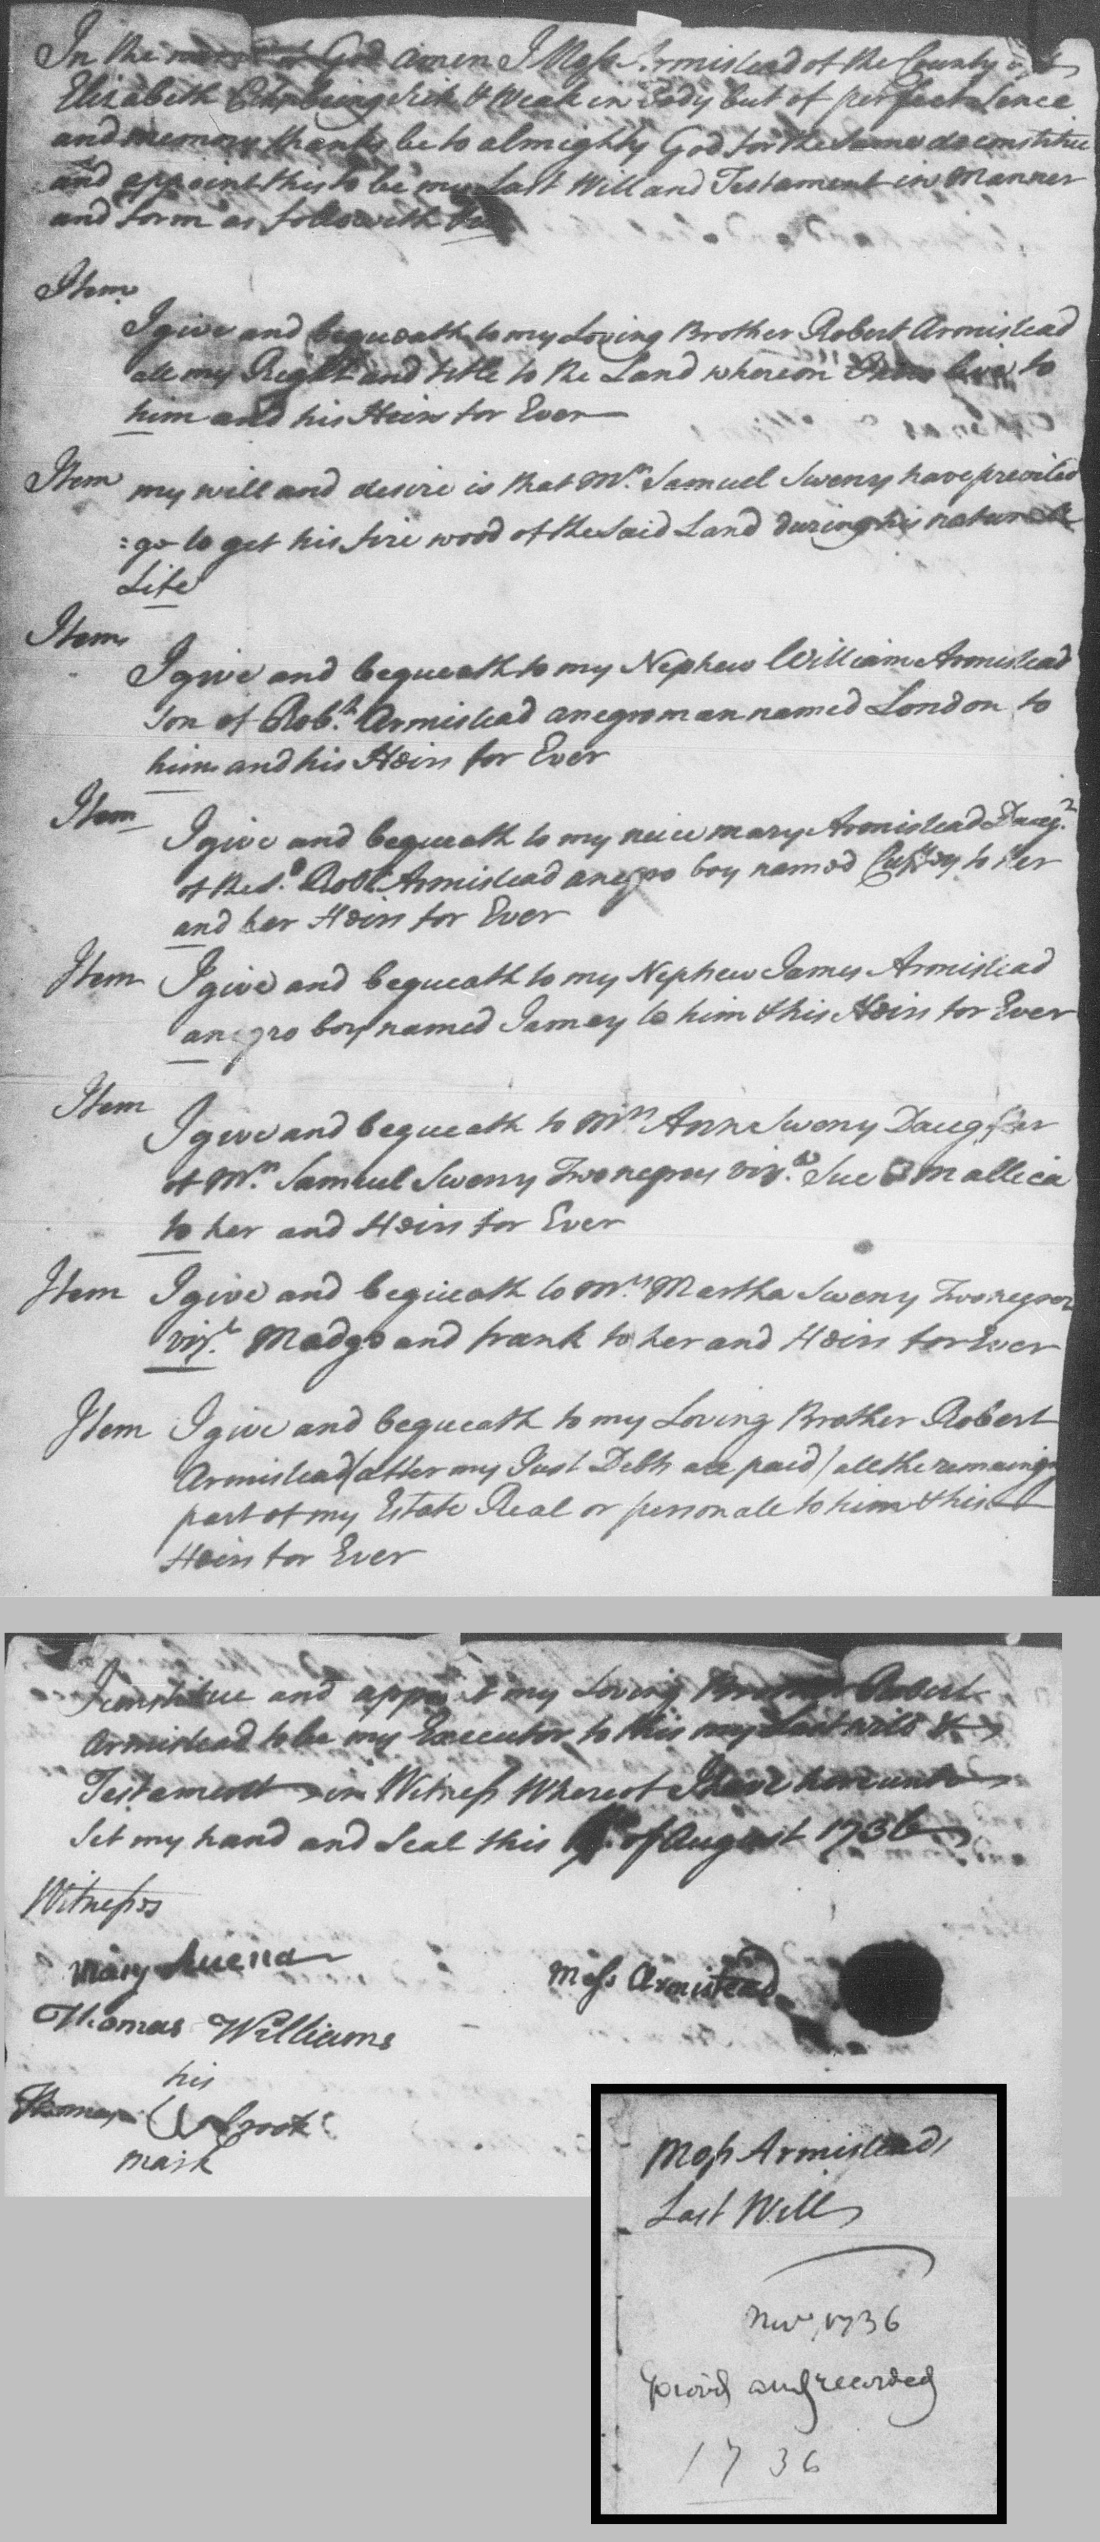 In the name of God amen I Moss Armistead of the County of
Elizabeth City being Sick & Weak in Body but of perfect Sence
and memory thanks be to almighty God for the Same do constitue
and appoint this to be my Last Will and Testament in Manner
and form as followeth
Item
I give and bequeath to my Loving Brother Robert Armistead
all my Right and title to the Land whereon live to
him and his Heirs for Ever
Item my will and desire is that Mr. Samuel Sweny have previled
:ge to get his fire wood of the Said Land during his naturall
Life
Item
I give and bequeath to my Nephew William Armistead
Son of Robt. Armistead a negro man named London to
him and his Heirs for Ever
Item
I give and bequeath to my neice mary Armistead Daugr.
of the Sd. Robt Armistead a negro boy named to her
and her Heirs for Ever
Item I give and bequeath to my Nephew James Armistead
a negro boy named Jamey to him & his Heirs for Ever
Item
I give and bequeath to Mrs Ann Sweny Daughter
of Mr. Samuel Sweny Two negroes vizt. Sue & Mallica
to her and Heirs for Ever
Item I give and bequeath to Mrs Martha Sweny Two negroes
vizt. Madge and frank to her and Heirs for Ever
Item I give and bequeath to my Loving Brother Robert
Armistead (after my Just Debts are paid) all the remaining
part of my Estate Real or personall to him & his
Heirs for Ever
I constitue and appoint my Loving Brother Robert
Armistead to be my Executor to this my Last will &
Testament in Witness Whereof I have hereunto
Set my hand and Seal this of August 1736
Witnesses
Mary
Moss Armistead
Thomas Williams
his
Thomas
mark
Moss Armistead
Last Will
Novr. 1736
provd and recorded
1736